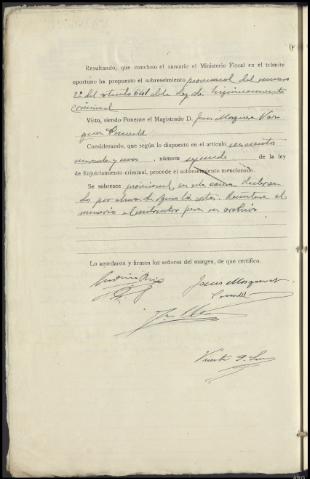 Resultando, que concluso el sumario el Ministerio Fiscal en el trámite
oportuno ha propuesto el sobreseimiento provisional del número
2º del artículo 641 de la Ley de Enjuiciamiento
criminal
Visto, siendo Ponente el Magistrado D. Jesus Marquez
Considerando, que según lo dispuesto en el artículo seiscientos
cuarenta y uno, número segundo de la ley
de Enjuiciamiento criminal, procede el sobreseimiento mencionado.
Se sobresee provisional en esta causa declaran
do por ahora de oficio las costas. Devuélvase el
sumario al instructor para su archivo
Lo acordaron y firman los señores del margen, de que certifico.
Jesus Marquez
Vicente